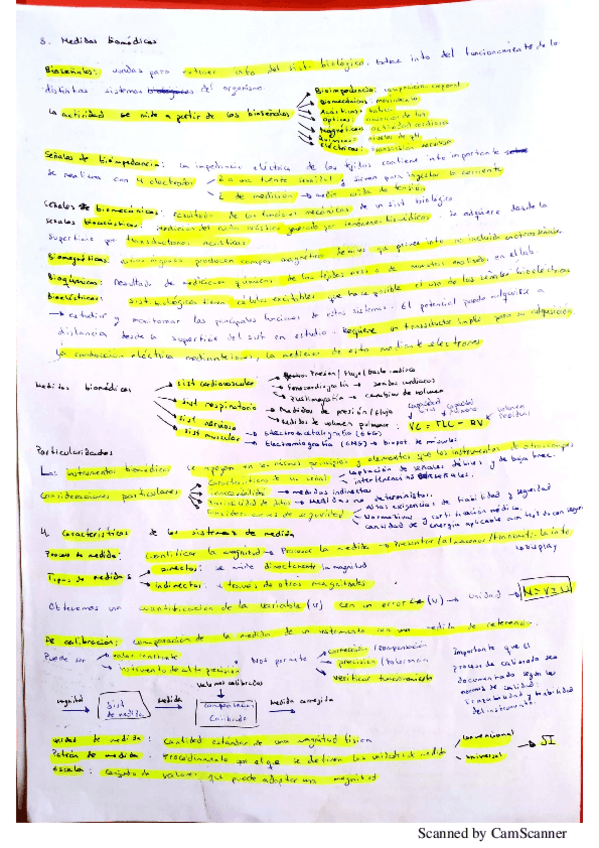 3. Medidas biomédicas
Bioseñales: usadas para extraer info del sist. biológico. sobre info del funcionamiento de los
distintos sistemas del organismo.
La actividad se mide a partir de las bioseñales
Bioimpedancia: composición corporal
Biomecánicas: movimiento
Acústicas:
Ópticas:
Magnéticas: actividad cardiaca
niveles de pH
Eléctricas: transmisión nerviosa
Señales de bioimpedancia: La impedancia eléctrica de los tejidos contiene info importante
se realizan con 4 electrodos
2 a una fuente y sirven para inyectar la corriente
2 de medición → medir caída de tensión
Señales de biomecánicas: resultado de las funciones mecánicas de un sist biológico
Señales bioacústicas: mediciones del ruido acústico generado por fenómenos biomédicos. Se adquiere desde la
superficie por transductores acústicos
Biomagnéticas: varios órganos producen campos magnéticos débiles que proveen info no incluida en otras señales.
Bioquímicas: Resultado de mediciones químicas de los tejidos vivos o de muestras analizadas en el lab.
Bioeléctricas: sist. biológico tiene células excitables que hace posible el uso de las señales bioeléctricas
→ estudiar y monitorear las principales funciones de estos sistemas. El potencial puede adquirirse a
distancia desde la superficie del sist en estudio. Requiere un transductor simple para su adquisición.
La conducción eléctrica mediante iones, la medición de esta mediante electrones
Medidas biomédicas
sist cardiovascular
Presión / Flujo / Gasto cardiaco
Fonocardiografía → sonidos cardiacos
Pletismografía → cambios de volumen
sist respiratorio
Medidas de presión/flujo
Medidas de volumen pulmonar:
capacidad vital
capacidad pulmonar
volumen residual
VC = TLC - RV
sist nervioso → Electroencefalografía (EEG)
sist muscular → Electromiografía (EMG) → biopot de músculos
Particularidades
Los instrumentos biomédicos se apoyan en los mismos principios y elementos que los instrumentos de otros campos
Consideraciones particulares
Características de la señal
captación de señales débiles y de baja frec.
interferencias señales.
Inaccesibilidad → medidas indirectas
Variabilidad de datos → medidas no deterministas.
Consideraciones de seguridad
altas exigencias de fiabilidad y seguridad
Normativas y certificación médica
Cantidad de energía aplicable a un tejido con segur.
4. Características de los sistemas de medida
Proceso de medida: Cuantificar la magnitud → Procesar la medida → Presentar/almacenar/transmitir la info
→ display
Tipos de medidas
Directas: se mide directamente la magnitud
indirectas: a través de otras magnitudes
Obtenemos una cuantificación de la variable (V) con un error (U) → unidad → M = V ± U
De calibración: comparación de la medida de un instrumento con una medida de referencia.
Puede ser
valor constante
instrumento de alta precisión
Nos permite
corrección / compensación
precisión / tolerancia
verificar funcionamiento
Importante que el
proceso de calibrado sea
documentado según las
normas de calidad:
trazabilidad y fiabilidad
del instrumento.
magnitud
Sist de medida
Medida
Valores calibrados
Comparación
Calibrado
Medida corregida
Unidad de medida: Cantidad estándar de una magnitud física
Patrón de medida: Procedimiento por el que se definen las unidades de medida
Convencional
Universal
→ SI
Escala: Conjunto de valores que puede adoptar una magnitud
Scanned by CamScanner